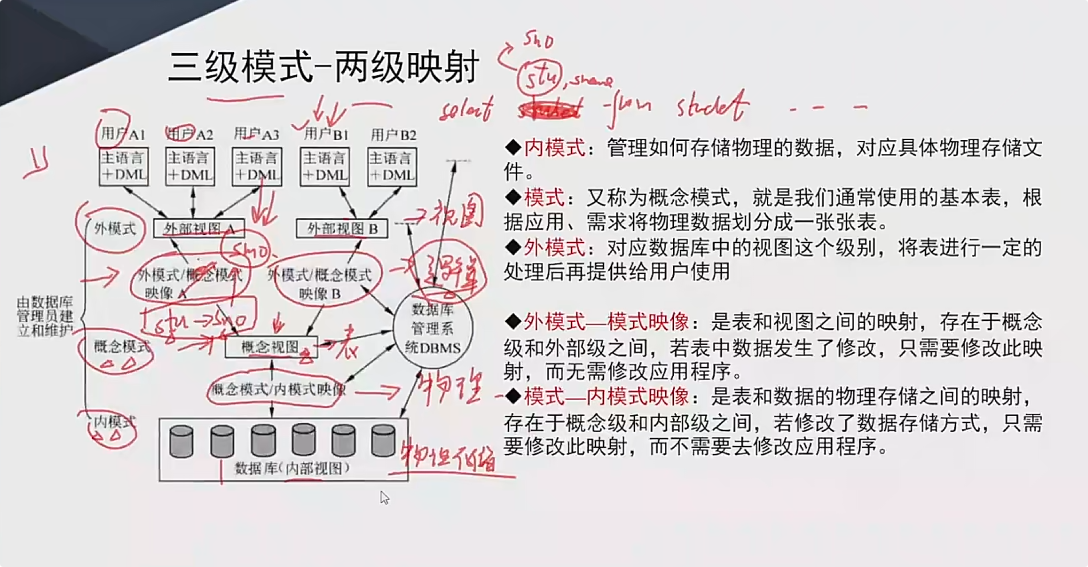 三级模式-两级映射
sno
stu, sname
select from studet - - -
用户A1 用户A2 用户A3 用户B1 用户B2
主语言 主语言 主语言 主语言 主语言
+DML +DML +DML +DML +DML
外模式
外部视图 A
外部视图 B
视图
sno
外模式/概念模式
映像 A
外模式/概念模式
映像 B
逻辑
stu→sno
由数据库
管理员建
立和维护
数据库
管理系
统DBMS
概念模式
概念视图
表
概念模式/内模式映像
物理
内模式
数据库(内部视图)
◆内模式：管理如何存储物理的数据，对应具体物理存储文
件。
◆模式：又称为概念模式，就是我们通常使用的基本表，根
据应用、需求将物理数据划分成一张张表。
◆外模式：对应数据库中的视图这个级别，将表进行一定的
处理后再提供给用户使用
◆外模式—模式映像：是表和视图之间的映射，存在于概念
级和外部级之间，若表中数据发生了修改，只需要修改此映
射，而无需修改应用程序。
◆模式—内模式映像：是表和数据的物理存储之间的映射，
存在于概念级和内部级之间，若修改了数据存储方式，只需
要修改此映射，而不需要去修改应用程序。